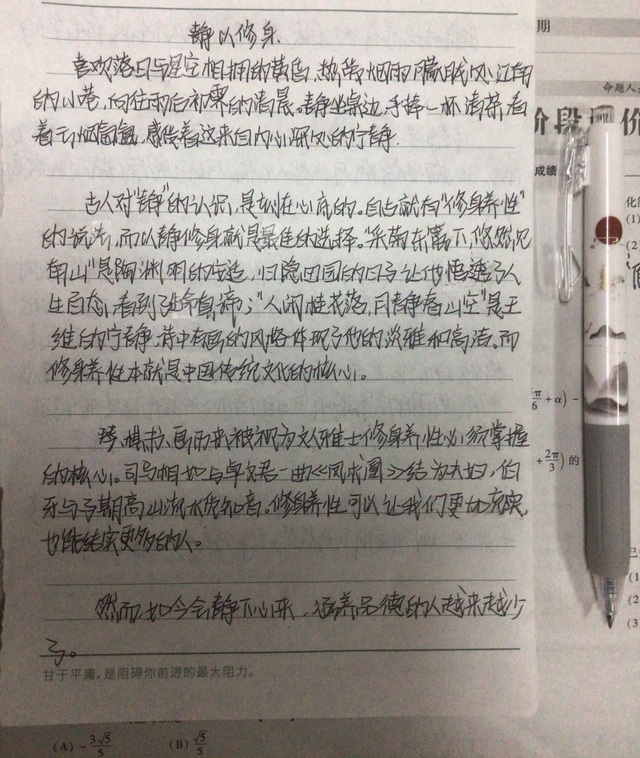 静以修身
喜欢落日与星空相拥的黄昏,热爱烟雨朦胧风江南
的小巷,向往雨后初霁的清晨。静坐桌边,手捧一杯清茶,看
着云烟氤氲,感受着这来自内心深处的宁静.
古人对"静"的认识,是刻在心底的。自古就有"修身养性"
的说法,而以静修身就是最佳的选择。"采菊东篱下,悠然见
南山"是陶渊明的,归隐田园的日子让他悟透了人
生百态,看到了生命真谛;"人闲桂花落,月静春山空"是王
维的宁静,诗中有画的风格体现了他的淡雅和高洁。而
修身养性本就是中国传统文化的核心。
琴、棋、书、画而被视为文人雅士修身养性必须掌握
的核心。司马相如与卓文君一曲《凤求凰》结为夫妇,伯
牙与子期高山流水觅知音。修身养性可以让我们更加充实,
也能结实更多的人。
然而,如今会静下心来,涵养品德的人越来越少
了。
甘于平庸,是阻碍你前进的最大阻力。
期
命题人
阶段
价
成绩
化简
(1)
(2)
π/6 + α) -
+ 2π/3) 的
已
(1)
(2)
(3)
(A) -3√5/5 (B) √5/5